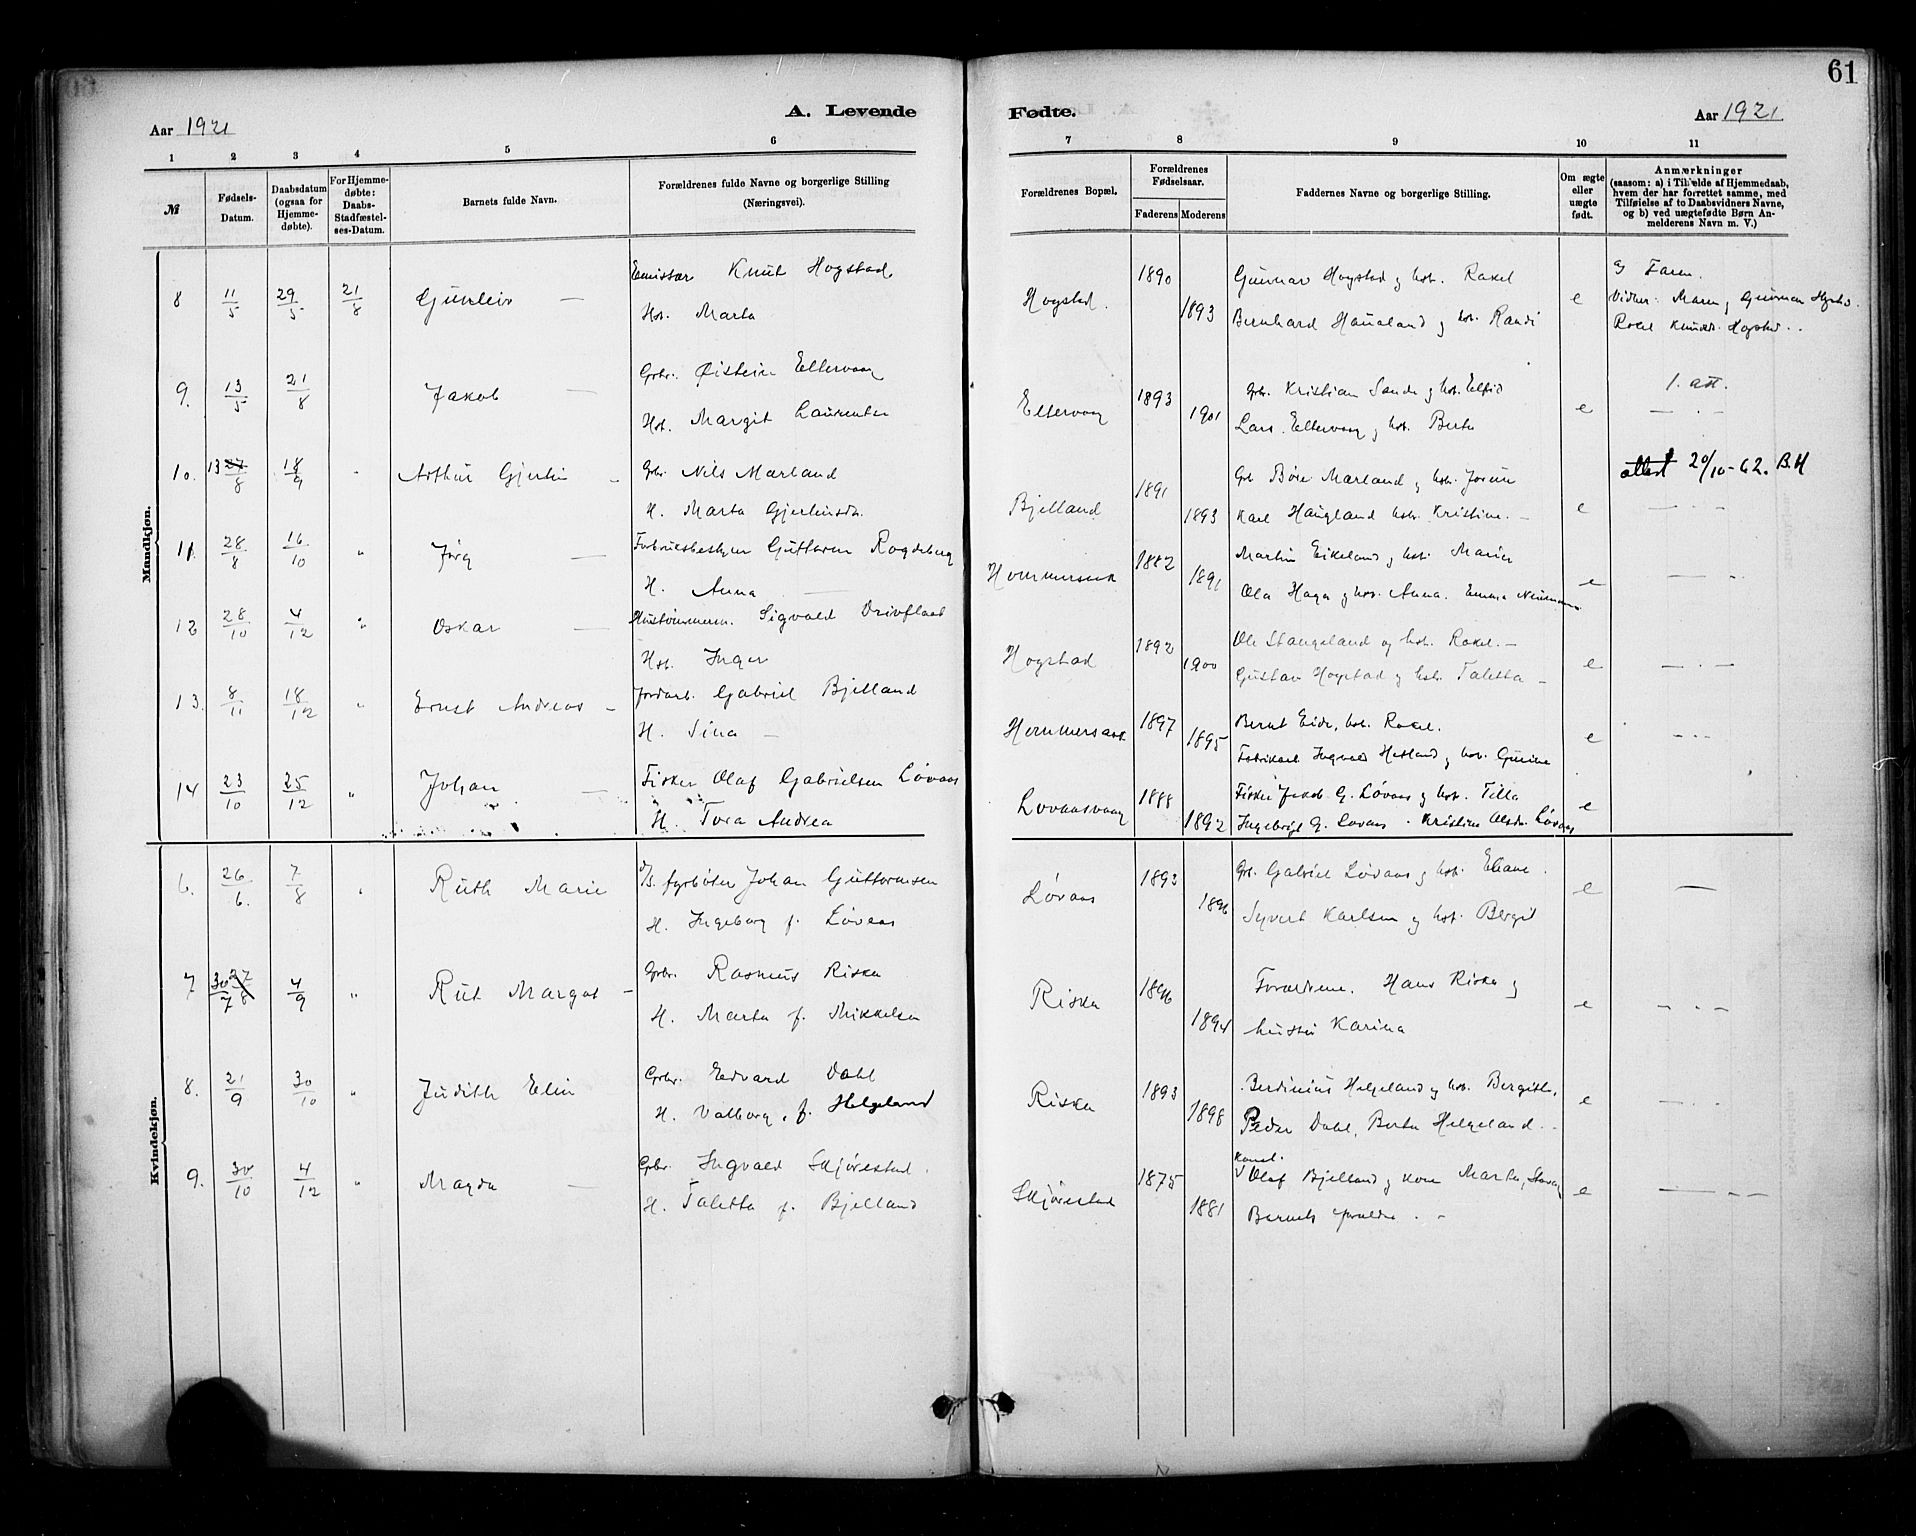 61
A. Levende Fødte.
Aar 1921
Aar 1921
1 2 3 4 5 6 7 8 9 10 11
№
Fødsels-Datum.
Daabsdatum (ogsaa for Hjemme-døbte).
For Hjemme-døbte: Daabs-Stadfæstel-ses-Datum.
Barnets fulde Navn.
Forældrenes fulde Navne og borgerlige Stilling (Næringsvei).
Forældrenes Bopæl.
Forældrenes Fødselsaar.
Faderens Moderens
Faddernes Navne og borgerlige Stilling.
Om ægte eller uægte født.
Anmærkninger
(saasom: a) i Tilfælde af Hjemmedaab, hvem der har forrettet samme, med Tilføielse af to Daabsvidners Navne, og b) ved uægtefødte Børn An-melderens Navn m. V.)
Mandkjøn.
8 11/5 29/5 21/8 Gunleiv — Emissær Knut Hogstad
Hst. Marta
Hogstad. 1890 1893
Gunnar Hogstad og hst. Rakel
Bernhard Haualand og hst. Randi
e
Faren.
Rakel Hogstad
9. 13/5 21/8 Jakob — Grbr. Øistein Eltervaag
Hst. Margit Laurentze
Eltervaag 1893 1901
Gbr. Kristian Sande og hst.
Lars Eltervaag og hst. Berta
e
1. att.
— . —
10. 13 27/8 18/9 " Arthur Gjertin — Gbr. Nils Marland
H. Marta Gjertinsdr.
Bjelland 1891 1893
Gb. Marland og hst.
Karl Haugland hst. Kristine. —
e
attest 20/10-62. B.H
— . —
11. 28/8 16/10 " Jørg — Guttorm Rogdeberg
H. Anna —
Hommersak 1882 1891
Martin Eikeland og hst. Marie
Ola Haga og hst. Anna. Emma
e
12 28/10 4/12 " Oskar — Sigvald Drivflaat
Hst. Inger
Hogstad 1892 1900
Ole Stangeland og hst. Rakel. —
Gustav Hogstad og hst. Taletta —
e — . —
13. 8/11 18/12 " Ernst Andreas — Jordarb. Gabriel Bjelland
H. Sina —
Hommersak 1897 1895
Bernt Eide, hst. Rakel.
Fabrikarb. Ingvald Hetland og hst. Gurine
e
14 23/10 25/12 " Johan — Fisker Olaf Gabrielsen Løvaas
H. Tora Andrea
Lovaasvaag 1888 1892
Fisker Jakob G. Løvaas og hst. Tilla
Ingebrigt G. Lovaas. Kristine Olsdr. Løvaas
e
Kvindekjøn.
6. 26/6. 7/8 " Ruth Marie fyrbøter Johan Guttormsen
H. Ingeborg f. Løvaas
Løvaas 1893 1896
Gb. Gabriel Løvaas og hst. Eliane.
Syvert Karlsen og hst. Bergit
e —
7 30/7 27/8 4/9 " Rut Margot — Grbr. Rasmus Riska
H. Marta f. Mikkelsen
Riska 1896 1894
Forældrene. Hans Riska og
hustru Karina
e — . —
8. 21/9 30/10 " Judith Elin Grbr. Edvard Dahl
H. Valborg, f. Helgeland
Riska 1893 1898
Berdinius Helgeland og hst. Bergithe,
Peder Dahl, Berta Helgeland.
e
9. 30/10 4/12 " Magda — Gbr. Ingvald Skjørestad.
H. Taletta f. Bjelland
Skjørestad 1875 1881
Olaf Bjelland og kone Marta,
Barnets forældre. —
e